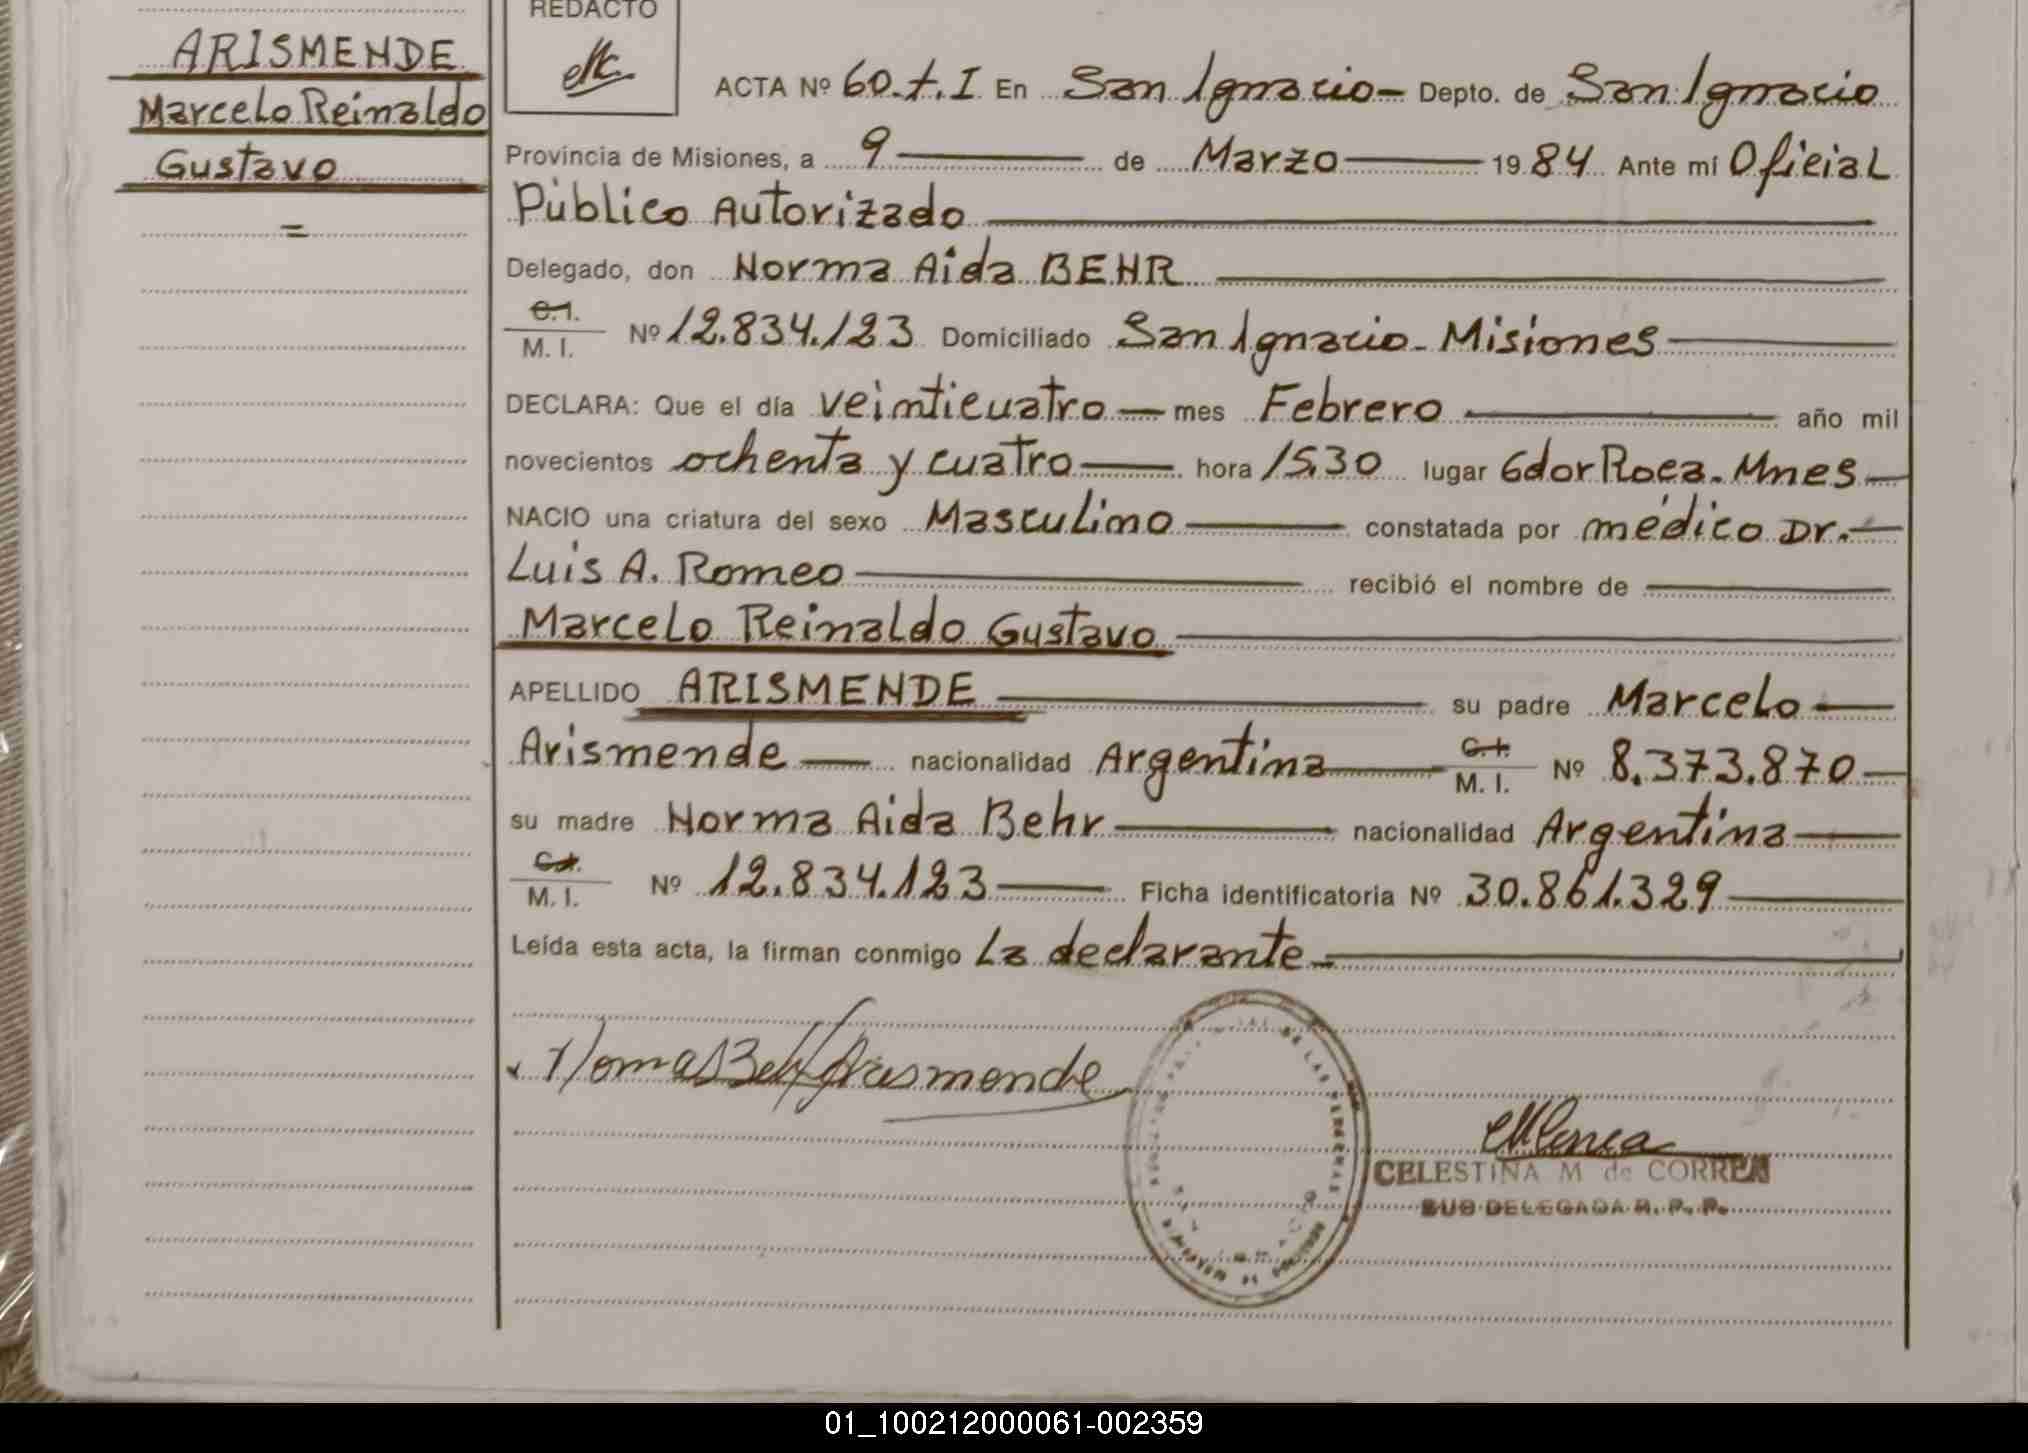 REDACTO
ARISMENDE
Marcelo Reinaldo
Gustavo
=
ACTA Nº 60.t.I En San Ignacio- Depto. de San Ignacio
Provincia de Misiones, a 9 de Marzo 1984 Ante mí Oficial
Público Autorizado
Delegado, don Norma Aida BEHR
C.I.
M. I. Nº 12.834.123 Domiciliado San Ignacio - Misiones
DECLARA: Que el día veinticuatro mes Febrero año mil
novecientos ochenta y cuatro hora 15,30 lugar Gdor Roca. Mnes
NACIO una criatura del sexo Masculino constatada por médico Dr.
Luis A. Romeo recibió el nombre de
Marcelo Reinaldo Gustavo
APELLIDO ARISMENDE su padre Marcelo
Arismende nacionalidad Argentina C.I. M. I. Nº 8.373.870
su madre Norma Aida Behr nacionalidad Argentina
C.I.
M. I. Nº 12.834.123 Ficha identificatoria Nº 30.861.329
Leída esta acta, la firman conmigo La declarante
DE LAS PERSONAS
CELESTINA M de CORREA
SUB DELEGADA R. P. P.
01_100212000061-002359